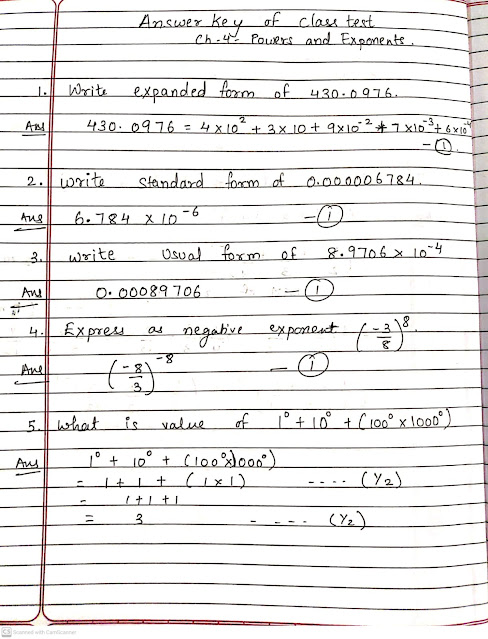 Answer key of class test
Ch-4- Powers and Exponents.
1. Write expanded form of 430.0976.
Ans 430.0976 = 4×10² + 3×10 + 9×10⁻² + 7×10⁻³ + 6×10⁻⁴
- ①
2. write standard form of 0.000006784.
Ans 6.784 × 10⁻⁶ - ①
3. write Usual form of 8.9706 × 10⁻⁴
Ans 0.00089706 - ①
4. Express as negative exponent (-3/8)⁸.
Ans (-8/3)⁻⁸ - ①
5. What is value of 1⁰ + 10⁰ + (100⁰ × 1000⁰)
Ans 1⁰ + 10⁰ + (100⁰×1000⁰)
= 1 + 1 + (1×1) ---- (1/2)
= 1+1+1
= 3 ---- (1/2)
CS Scanned with CamScanner